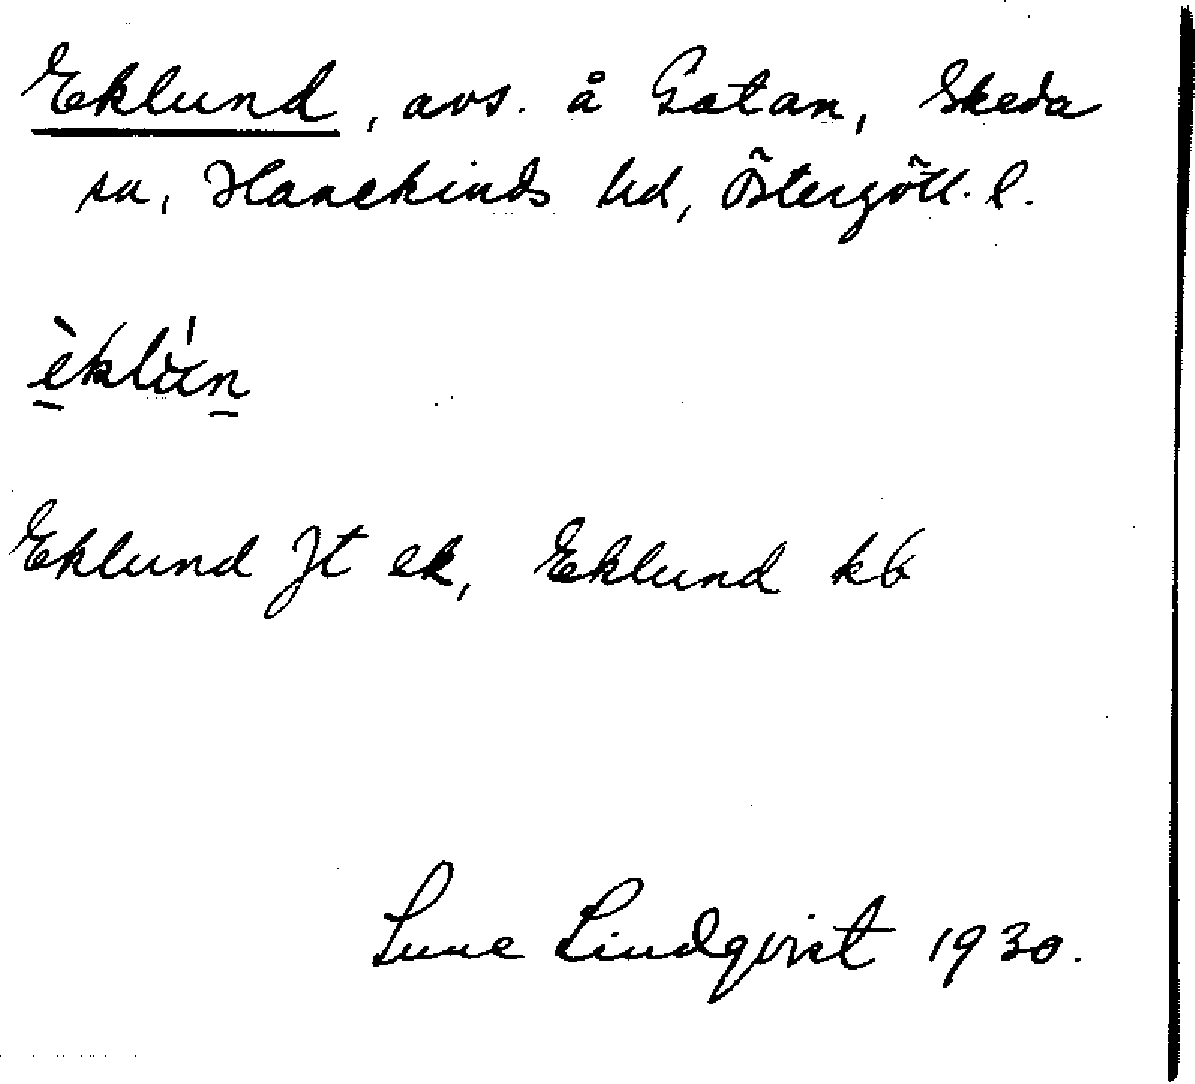 Eklund, avs. å Gatan, Skeda
sn, Hanekinds hd, Östergötl. l.
Eklund Jt ek, Eklund kb
Sune Lindqvist 1930.